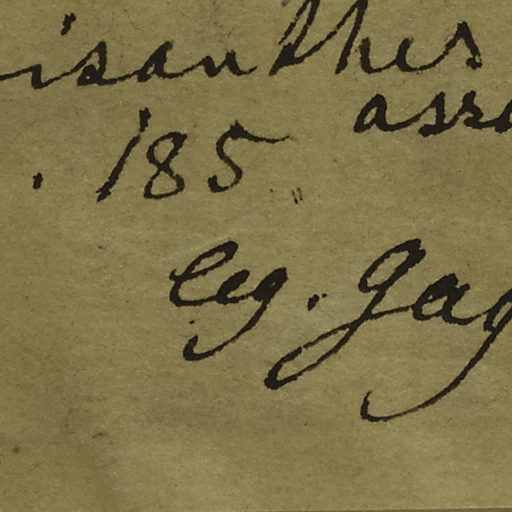 isanthes
asso
. 185
leg. Gag